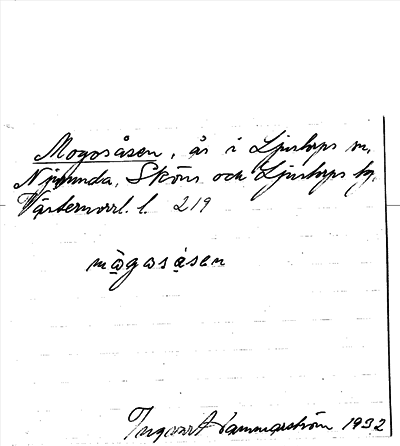 Mogosåsen, ås i Ljustorps sn,
Njurunda, Sköns och Ljustorps tg,
Västernorrl. l. 219
mògasåsen
Ingvart Hammarström 1932